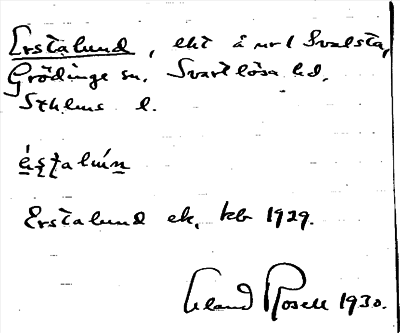 Erstalund, eht å nr 1 Svalsta,
Grödinge sn. Svartlösa hd.
Sthlms l.
Erstalund ek. kb 1929.
Erland Rosell 1930.